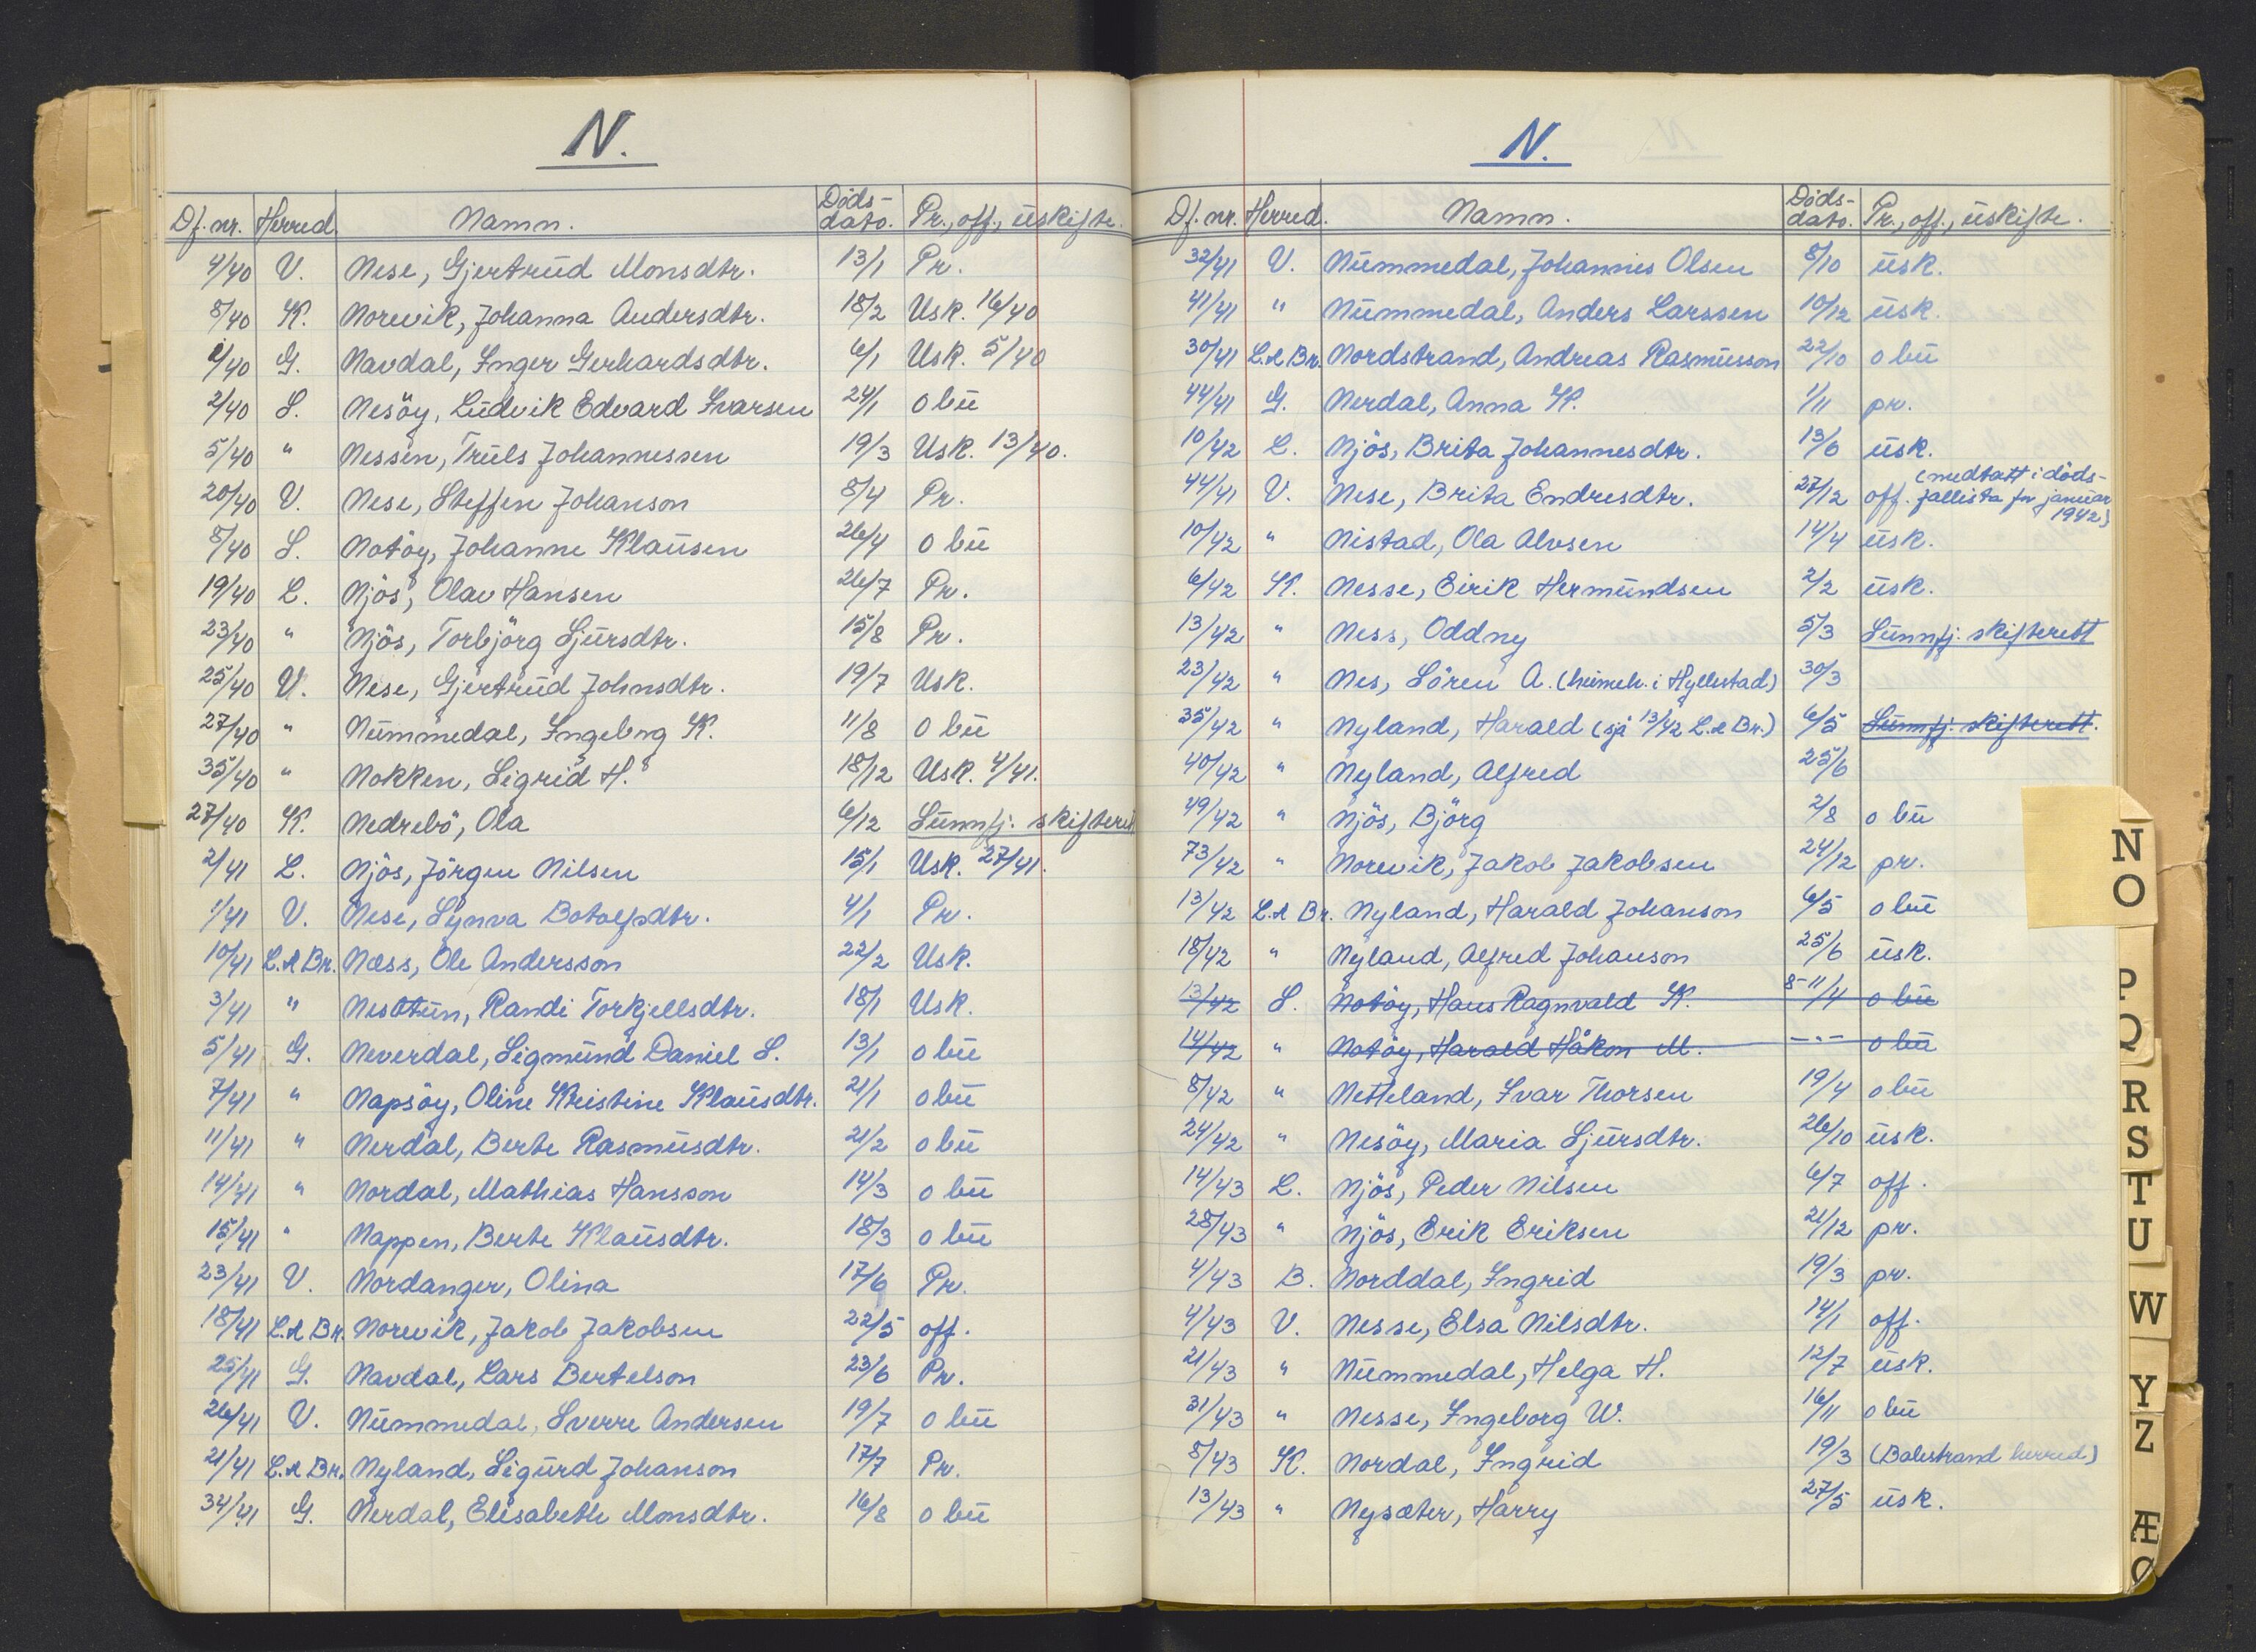 N.
Df. nr. Herred. Namn. Døds-dato. Pr., off., uskifte.
4/40 V. Nese, Gjertrud Monsdtr. 13/1 Pr.
8/40 K. Norevik, Johanna Andersdtr. 18/2 Usk. 16/40
/40 G. Navdal, Inger Gerhardsdtr. 6/1 Usk. 5/40
2/40 S. Nesöy, Ludvik Edvard Ivarsen 24/1 o bu
5/40 " Nessen, Truls Johannessen 19/3 Usk. 13/40.
20/40 V. Nese, Steffen Johanson 8/4 Pr.
8/40 S. Notöy, Johanne Klausen 26/4 o bu
19/40 L. Njös, Olav Hansen 26/7 Pr.
23/40 " Njös, Torbjörg Sjursdtr. 15/8 Pr.
25/40 V. Nese, Gjertrud Johnsdtr. 19/7 Usk.
27/40 " Nummedal, Ingeborg K. 11/8 o bu
35/40 " Nokken, Sigrid H. 18/12 Usk. 4/41.
27/40 K. Nedrebö, Ola 6/12 Sunnfj. skifterett
2/41 L. Njös, Jörgen Nilsen 15/1 Usk. 27/41.
1/41 V. Nese, Synva Botolfsdtr. 4/1 Pr.
10/41 L. & Br. Næss, Ole Andersson 22/2 Usk.
3/41 " Nesttun, Randi Torkjellsdtr. 18/1 Usk.
5/41 G. Neverdal, Sigmund Daniel S. 13/1 o bu
7/41 " Napsöy, Oline Kristine Klausdtr. 21/1 o bu
11/41 " Nerdal, Berte Rasmusdtr. 21/2 o bu
14/41 " Nordal, Mathias Hansson 14/3 o bu
15/41 " Nappen, Berte Klausdtr. 18/3 o bu
23/41 V. Nordanger, Olina 17/6 Pr.
18/41 L. & Br. Norevik, Jakob Jakobsen 22/5 off.
25/41 G. Navdal, Lars Bertelson 23/6 Pr.
26/41 V. Nummedal, Sverre Andersen 19/7 o bu
21/41 L. & Br. Nyland, Sigurd Johanson 17/7 Pr.
34/41 G. Nerdal, Elisabeth Monsdtr. 16/8 o bu
N.
Df. nr. Herred. Namn. Døds-dato. Pr., off., uskifte.
32/41 V. Nummedal, Johannes Olsen 8/10 usk.
41/41 " Nummedal, Anders Larssen 10/12 usk.
30/41 L. & Br. Nordstrand, Andreas Rasmusson 22/10 o bu
44/41 G. Nerdal, Anna K. 1/11 pr.
10/42 L. Njös, Brita Johannesdtr. 13/6 usk.
44/41 V. Nese, Brita Endresdtr. 27/12 off. (medtatt i döds-
fallista for januar
1942)
10/42 " Nistad, Ola Alvsen 14/4 usk.
6/42 K. Nesse, Eirik Hermundsen 2/2 usk.
13/42 " Ness, Oddny 5/3 Sunnfj. skifterett
23/42 " Nes, Sören A. (heimeh. i Hyllestad) 30/3
35/42 " Nyland, Harald (sjå 13/42 L. & Br.) 6/5 Sunnfj. skifterett.
40/42 " Nyland, Alfred 25/6
49/42 " Njös, Björg 2/8 o bu
73/42 " Norevik, Jakob Jakobsen 24/12 pr.
13/42 L. & Br. Nyland, Harald Johanson 6/5 o bu
18/42 " Nyland, Alfred Johanson 25/6 usk.
13/42 S. Notöy, Hans Ragnvald K. 8-11/4 o bu
14/42 " Notöy, Harald Håkon M. -"- o bu
8/42 " Netteland, Ivar Thorsen 19/4 o bu
24/42 " Nesöy, Maria Sjursdtr. 26/10 usk.
14/43 L. Njös, Peder Nilsen 6/7 off.
28/43 " Njös, Erik Eriksen 21/12 pr.
4/43 B. Norddal, Ingrid 19/3 pr.
4/43 V. Nesse, Elsa Nilsdtr. 14/1 off.
21/43 " Nummedal, Helga H. 12/7 usk.
31/43 " Nesse, Ingeborg W. 16/11 o bu
8/43 K. Nordal, Ingrid 19/3 (Balestrand herred)
13/43 " Nysæter, Harry 27/5 usk.
N
O
P
Q
R
S
T
U
W
Y
Z
Æ
Ø